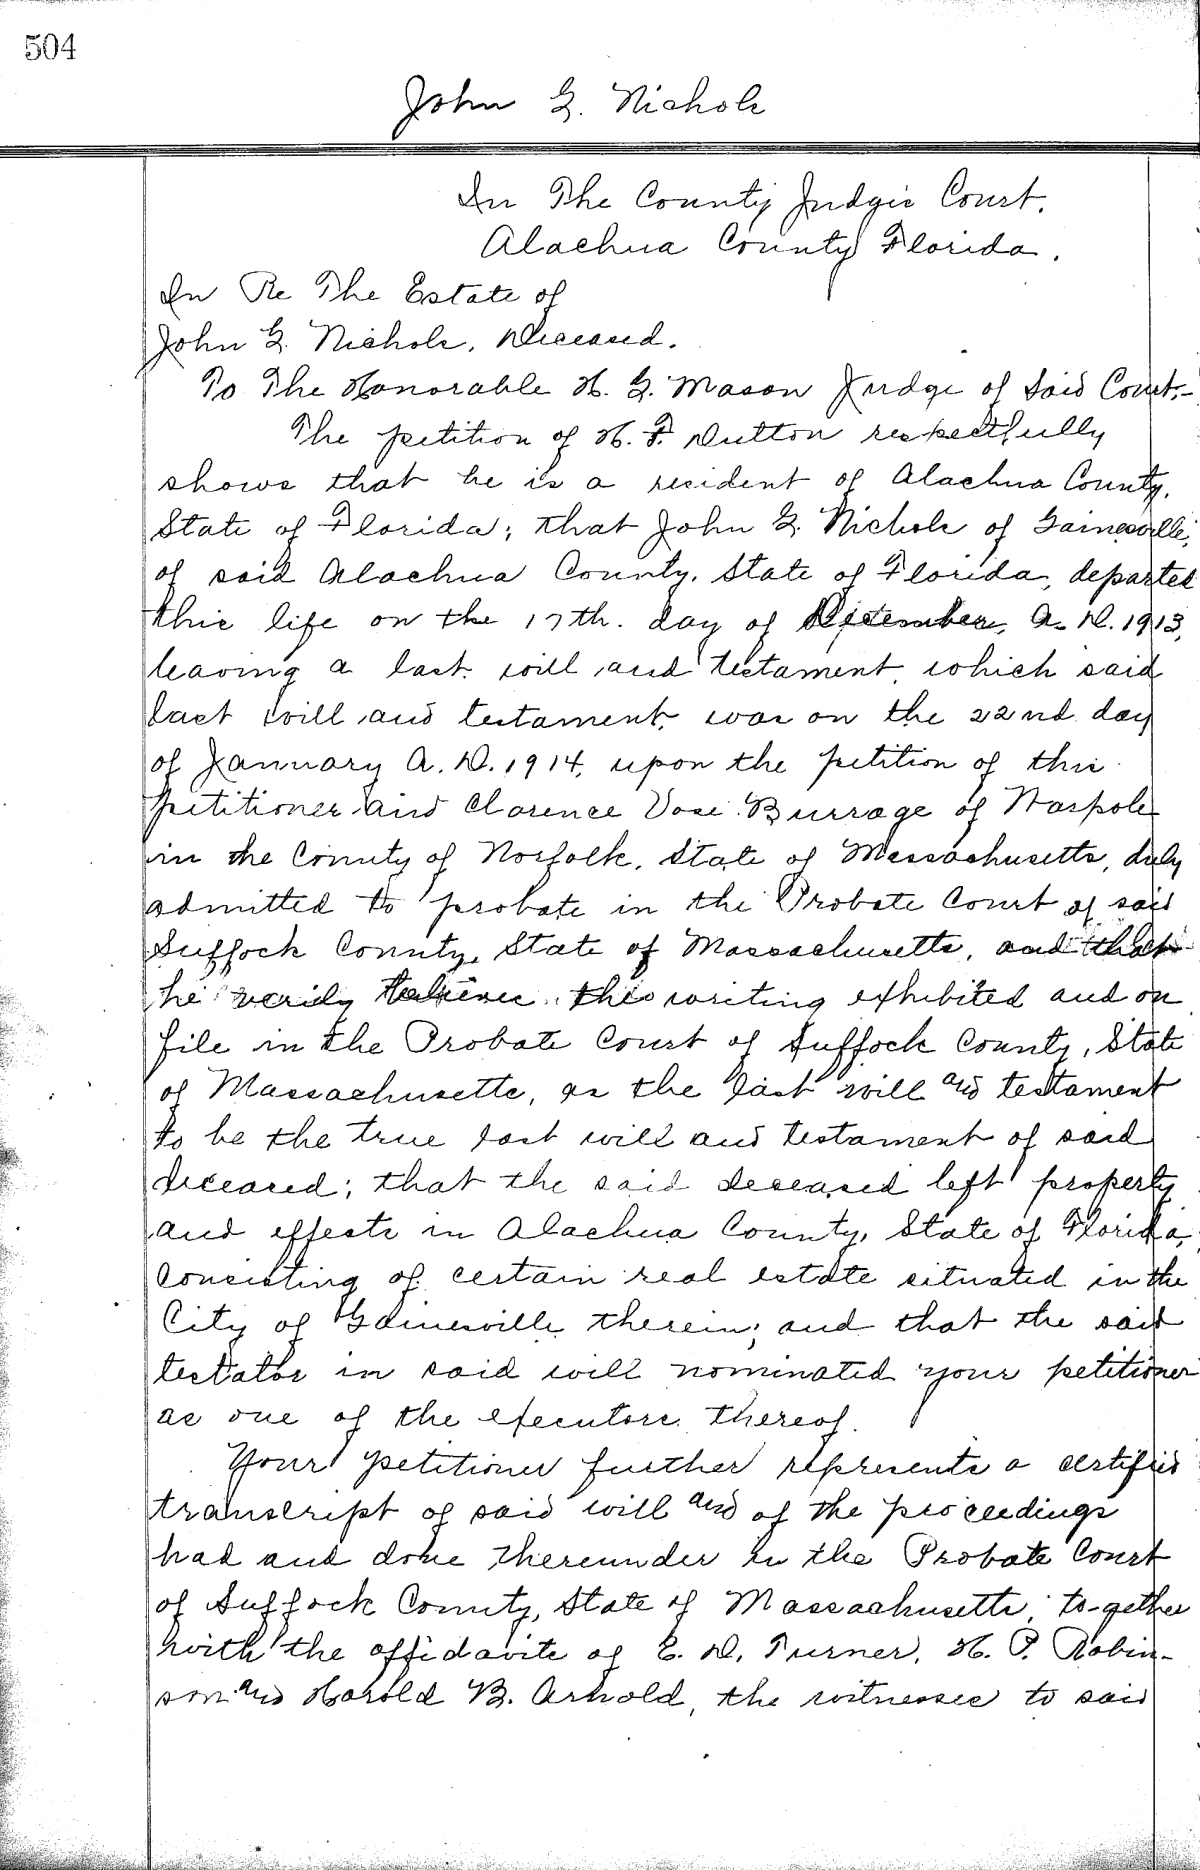 504
John G. Nichols
In The County Judges Court.
Alachua County Florida.
In Re The Estate of
John G. Nichols, Deceased.
To The Honorable H. G. Mason Judge of Said Court:-
The petition of H. F. Dutton respectfully
shows that he is a resident of Alachua County,
State of Florida; that John G. Nichols of Gainesville,
of said Alachua County, State of Florida, departed
this life on the 17th. day of December, A. D. 1913,
leaving a last will and testament, which said
last will and testament, was on the 22nd day
of January A. D. 1914, upon the petition of this
petitioner and Clarence Vose Burrage of Warpole
in the County of Norfolk, State of Massachusetts, duly
admitted to probate in the Probate Court of said
Suffock County, State of Massachusetts, and that
he verily believes this writing exhibited and on
file in the Probate Court of Suffock County, State
of Massachusetts, as the last will and testament
to be the true last will and testament of said
deceased; that the said deceased left property
and effects in Alachua County, State of Florida,
consisting of certain real estate situated in the
City of Gainesville therein; and that the said
testator in said will nominated your petitioner
as one of the executors thereof.
Your petitioner further represents a certified
transcript of said will and of the proceedings
had and done thereunder in the Probate Court
of Suffock County, State of Massachusetts, to-gether
with the affidavits of E. D. Turner, H. P. Robin-
son and Harold B. Arnold, the witnesses to said